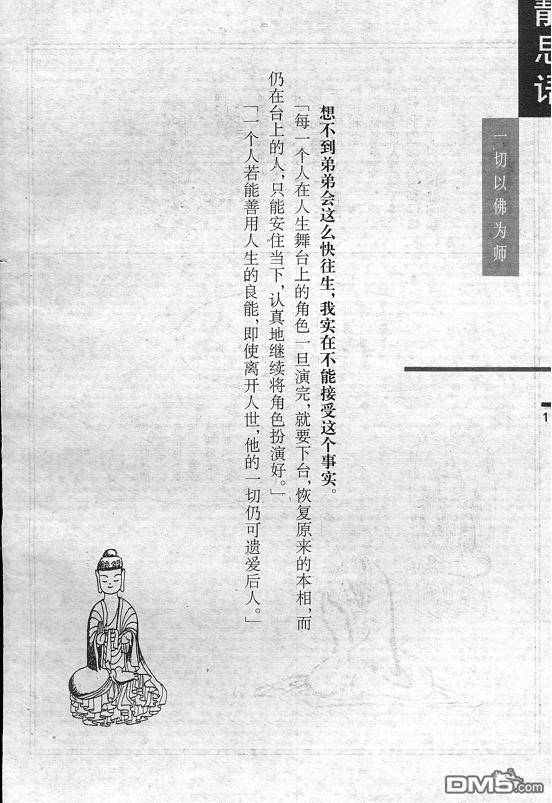 静思语
一切以佛为师
想不到弟弟会这么快往生，我实在不能接受这个事实。
「每一个人在人生舞台上的角色一旦演完，就要下台，恢复原来的本相，而
仍在台上的人，只能安住当下，认真地继续将角色扮演好。」
「一个人若能善用人生的良能，即使离开人世，他的一切仍可遗爱后人。」
DM5.com